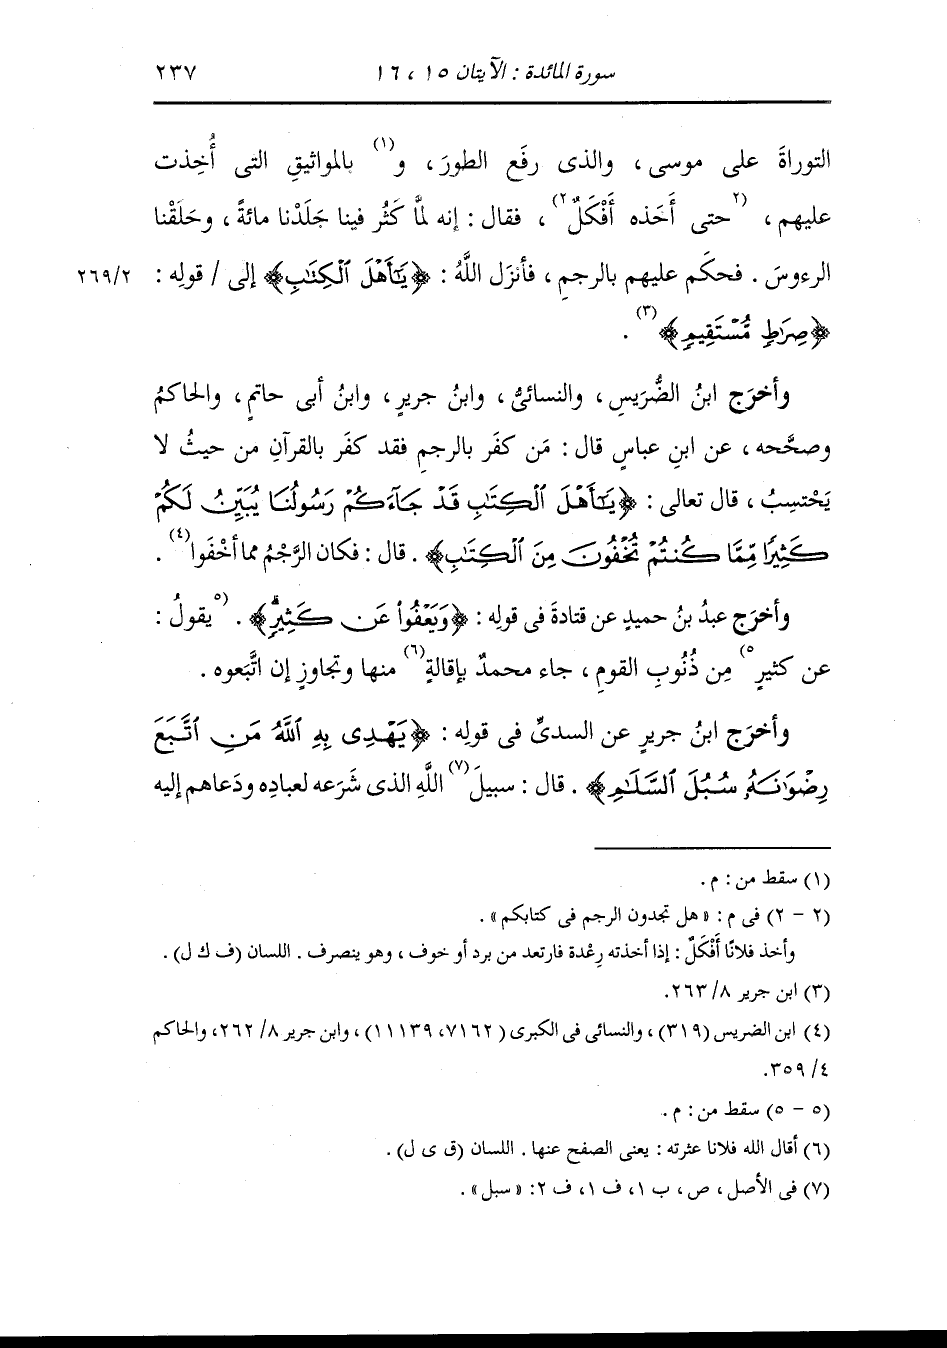 سورة المائدة : الآيتان ١٥ ، ١٦ ٢٣٧
التوراةَ على موسى ، والذى رفَع الطورَ ، و(١) بالمواثيقِ التى أُخِذت
عليهم ، (٢حتى أَخَذه أَفْكَلٌ٢) ، فقال : إنه لمَّا كَثُر فينا جَلَدْنا مائةً ، وحَلَقْنا
الرءوسَ . فحكَم عليهم بالرجمِ ، فأنزَل اللَّهُ : ﴿يَٰٓأَهْلَ ٱلْكِتَٰبِ﴾ إلى / قولِه : ٢٦٩/٢
﴿صِرَٰطٍ مُّسْتَقِيمٍ﴾(٣) .
وأخرَج ابنُ الضُّرَيسِ ، والنسائىُّ ، وابنُ جريرٍ ، وابنُ أبى حاتمٍ ، والحاكمُ
وصحَّحه ، عن ابنِ عباسٍ قال : مَن كفَر بالرجمِ فقد كفَر بالقرآنِ من حيثُ لا
يَحْتسِبُ ، قال تعالى : ﴿يَٰٓأَهْلَ ٱلْكِتَٰبِ قَدْ جَآءَكُمْ رَسُولُنَا يُبَيِّنُ لَكُمْ
كَثِيرًا مِّمَّا كُنتُمْ تُخْفُونَ مِنَ ٱلْكِتَٰبِ﴾ . قال : فكان الرَّجْمُ مما أخْفَوا(٤) .
وأخرَج عبدُ بنُ حميدٍ عن قتادةَ فى قولِه : ﴿وَيَعْفُوا۟ عَن كَثِيرٍۢ﴾ . (٥يقولُ :
عن كثيرٍ٥) مِن ذُنُوبِ القومِ ، جاء محمدٌ بإقالةٍ(٦) منها وتجاوزٍ إن اتَّبَعوه .
وأخرَج ابنُ جريرٍ عن السدىِّ فى قولِه : ﴿يَهْدِى بِهِ ٱللَّهُ مَنِ ٱتَّبَعَ
رِضْوَٰنَهُۥ سُبُلَ ٱلسَّلَٰمِ﴾ . قال : سبيلَ(٧) اللَّهِ الذى شَرَعه لعبادِه ودَعاهم إليه
(١) سقط من : م .
(٢ - ٢) فى م : « هل تجدون الرجم فى كتابكم » .
وأخذ فلانًا أَفْكَلٌ : إذا أخذته رِعْدة فارتعد من برد أو خوف ، وهو ينصرف . اللسان (ف ك ل) .
(٣) ابن جرير ٨/ ٢٦٣.
(٤) ابن الضريس (٣١٩) ، والنسائى فى الكبرى (٧١٦٢، ١١١٣٩) ، وابن جرير ٨/ ٢٦٢، والحاكم
٤/ ٣٥٩.
(٥ - ٥) سقط من : م .
(٦) أقال الله فلانا عثرته : يعنى الصفح عنها . اللسان (ق ى ل) .
(٧) فى الأصل ، ص ، ب ١، ف ١، ف ٢: « سبل » .